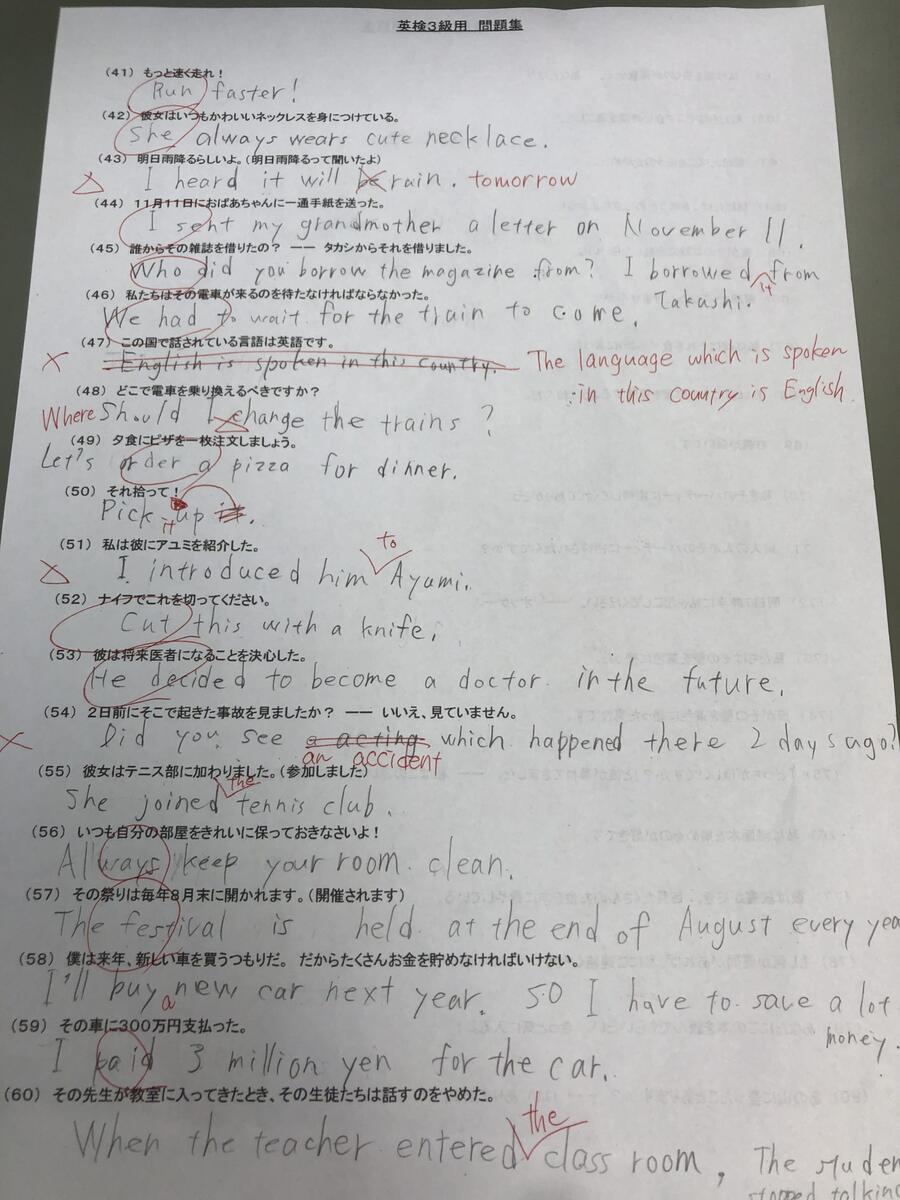 英検3級用 問題集
(41) もっと速く走れ!
Run faster!
(42) 彼女はいつもかわいいネックレスを身につけている。
She always wears cute necklace.
(43) 明日雨降るらしいよ。(明日雨降るって聞いたよ)
△ I heard it will be rain. tomorrow
(44) 11月11日におばあちゃんに一通手紙を送った。
I sent my grandmother a letter on November 11.
(45) 誰からその雑誌を借りたの? ―― タカシからそれを借りました。
Who did you borrow the magazine from? I borrowed it from
Takashi.
(46) 私たちはその電車が来るのを待たなければならなかった。
We had to wait for the train to come.
(47) この国で話されている言語は英語です。
× English is spoken in this country. The language which is spoken
in this country is English.
(48) どこで電車を乗り換えるべきですか?
Where Should I change the trains?
(49) 夕食にピザを一枚注文しましょう。
Let's order a pizza for dinner.
(50) それ拾って!
Pick up it.
it
(51) 私は彼にアユミを紹介した。
to
△ I introduced him Ayumi.
(52) ナイフでこれを切ってください。
Cut this with a knife.
(53) 彼は将来医者になることを決心した。
He decided to become a doctor in the future.
(54) 2日前にそこで起きた事故を見ましたか? ―― いいえ、見ていません。
× Did you see a acting which happened there 2 days ago?
an accident
(55) 彼女はテニス部に加わりました。(参加しました)
the
She joined tennis club.
(56) いつも自分の部屋をきれいに保っておきなさいよ!
Always keep your room clean.
(57) その祭りは毎年8月末に開かれます。(開催されます)
The festival is held at the end of August every yea
(58) 僕は来年、新しい車を買うつもりだ。 だからたくさんお金を貯めなければいけない。
I'll buy a new car next year. so I have to save a lot
money.
(59) その車に300万円支払った。
I paid 3 million yen for the car.
(60) その先生が教室に入ってきたとき、その生徒たちは話すのをやめた。
the
When the teacher entered class room, The studen
stopped talking